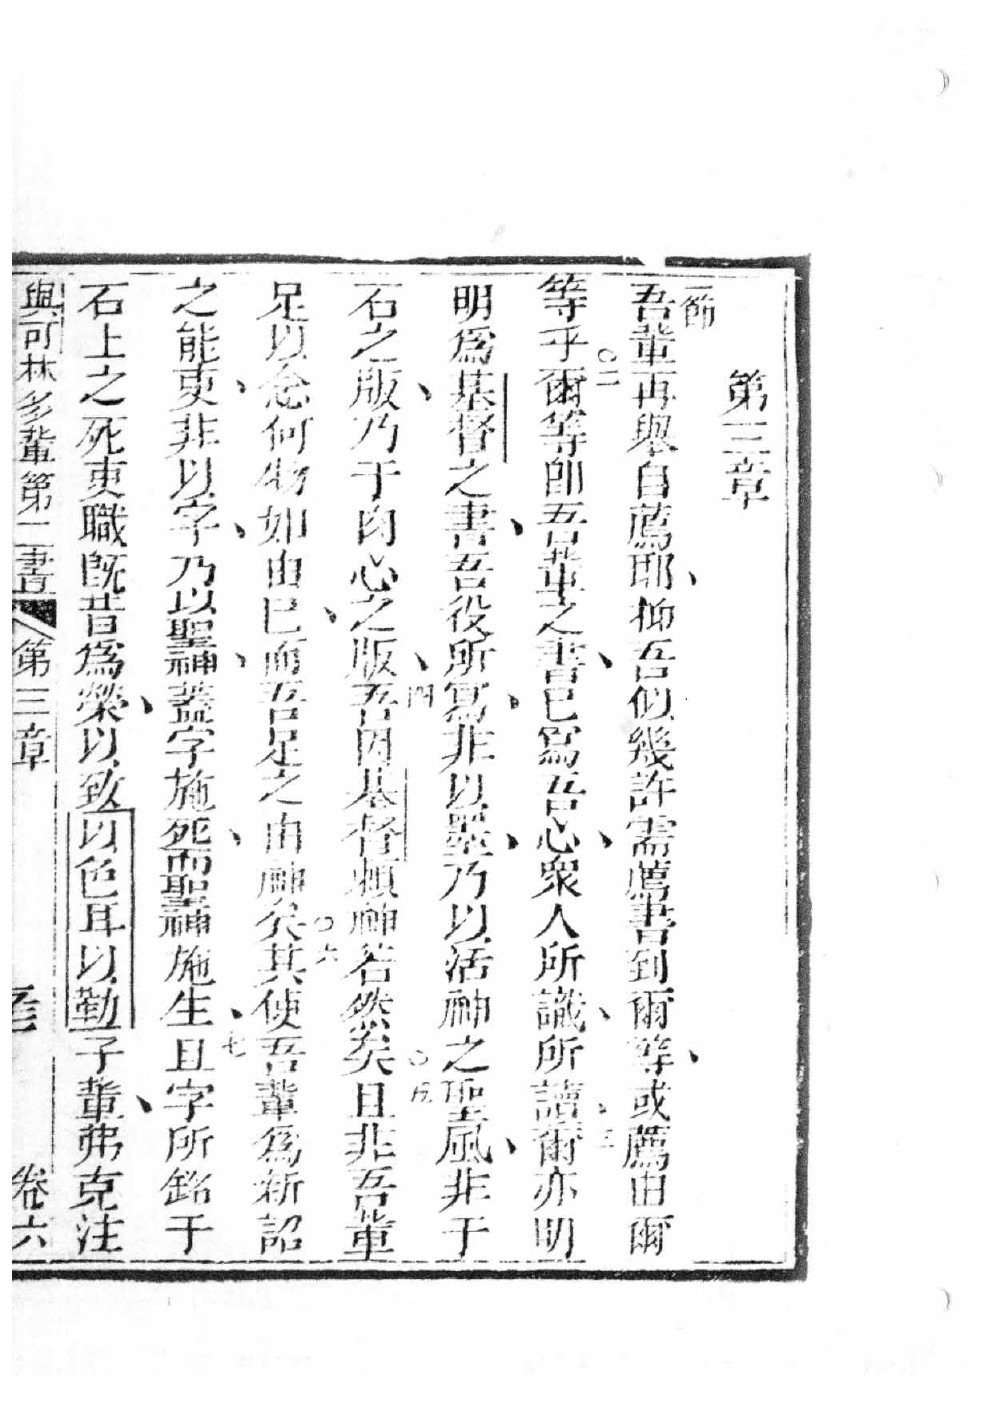 第三章
一節
吾輩再舉自薦耶、抑吾似幾許需薦書到爾等、或薦由爾
等乎○二爾等卽吾輩之書、已寫吾心、衆人所識、所讀、三爾亦明
明爲基督之書、吾役所寫、非以墨、乃以活神之聖風、非于
石之版、乃于肉心之版、四吾因基督賴神若然矣○五且非吾輩
足以念何物如由己、而吾足之由神矣○六其使吾輩爲新詔
之能吏、非以字、乃以聖神、蓋字施死、而聖神施生、七且字所銘于
石上之死吏職旣昔爲榮、以致以色耳以勒子輩、弗克注
與可林多輩第二書 第三章 卷六